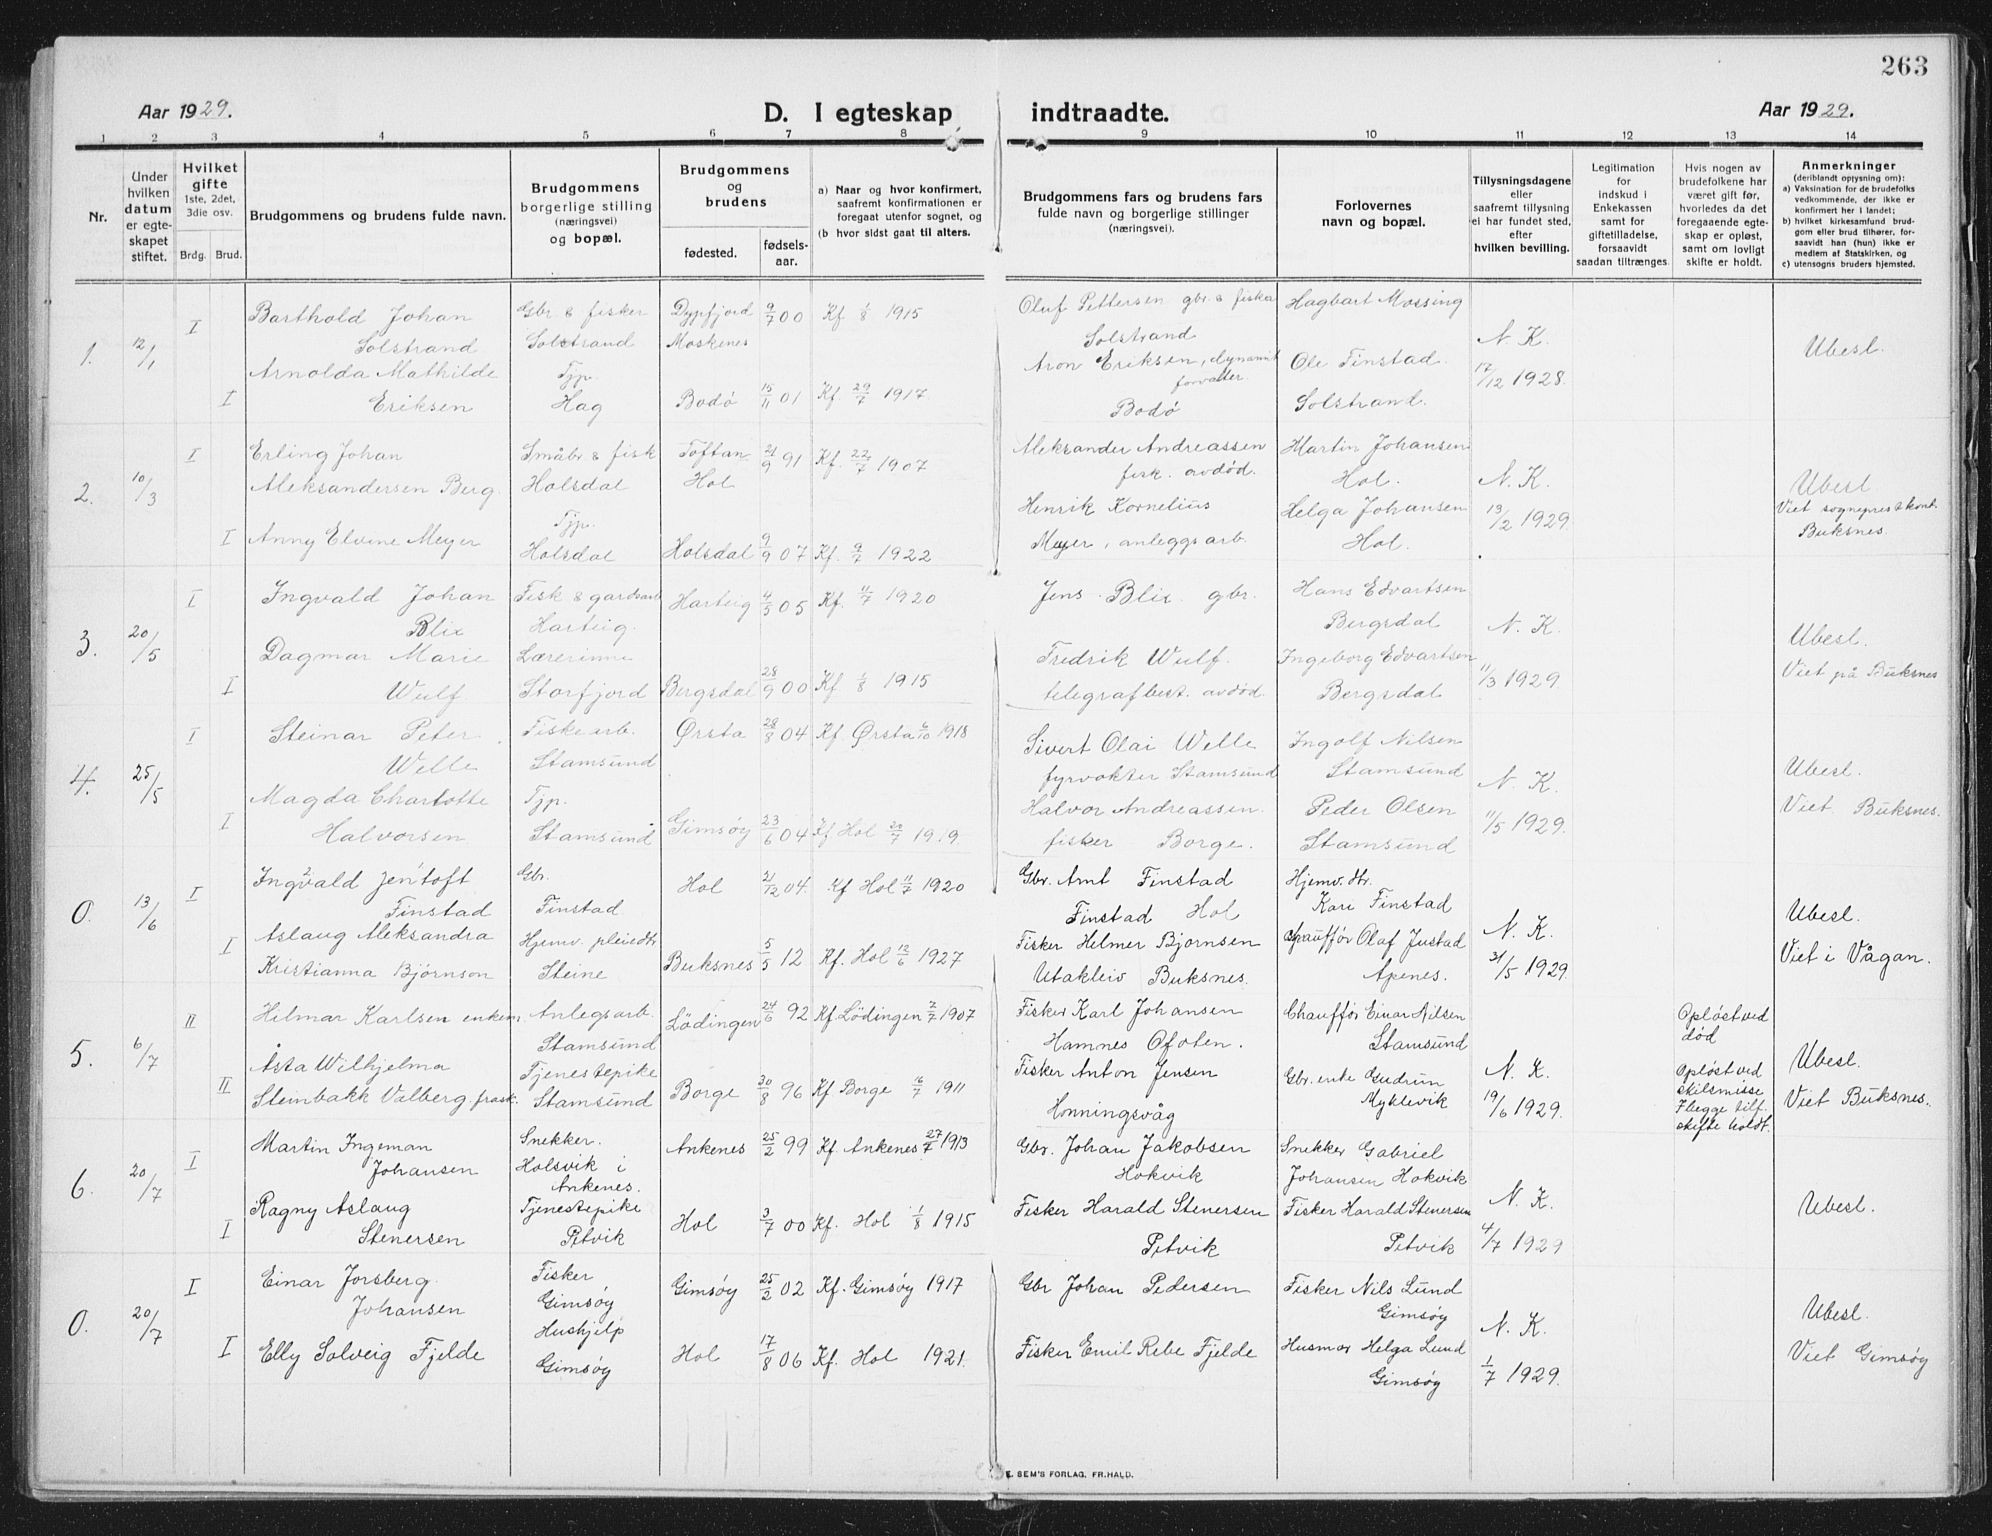 263
Aar 1929.
D. I egteskap indtraadte.
Aar 1929.
1 2 3 4 5 6 7 8 9 10 11 12 13 14
Nr.
Under hvilken datum er egte-skapet stiftet.
Hvilket gifte 1ste, 2det, 3die osv.
Brdg. Brud.
Brudgommens og brudens fulde navn.
Brudgommens borgerlige stilling (næringsvei) og bopæl.
Brudgommens og brudens
fødested. fødsels-aar.
a) Naar og hvor konfirmert, saafremt konfirmationen er foregaat utenfor sognet, og
(b hvor sidst gaat til alters.
Brudgommens fars og brudens fars fulde navn og borgerlige stillinger (næringsvei).
Forlovernes navn og bopæl.
Tillysningsdagene eller saafremt tillysning ei har fundet sted, efter hvilken bevilling.
Legitimation for indskud i Enkekassen samt for giftetilladelse, forsaavidt saadan tiltrænges
Hvis nogen av brudefolkene har været gift før, hvorledes da det foregaaende egte-skap er opløst, samt om lovligt skifte er holdt.
Anmerkninger (deriblandt oplysning om): a) Vaksination for de brudefolks vedkommende, der ikke er konfirmert her i landet; b) hvilket kirkesamfund brud-gom eller brud tilhører, for-saavidt han (hun) ikke er medlem af Statskirken, og c) utensogns bruders hjemsted.
1. 12/1
I Barthold Johan Solstrand
Gbr & fisker Solstrand
Dypfjord Moskenes 9/7 00 Kf 1/8 1915
Oluf Pettersen gbr & fisker Solstrand
Hagbart Mossing
N. K. 17/12 1928.
Ubesl.
I Arnolda Mathilde Eriksen
Tjp. Hag
Bodø 15/11 01 Kf 29/7 1917
Aron Eriksen, dynamit forvalter. Bodø
Ole Finstad. Solstrand.
2. 10/3
I Erling Johan Aleksandersen Berg.
Småbr & fisk Holsdal
Toftan Hol 21/9 91 Kf. 22/7 1907
Aleksander Andreassen fisk. avdød.
Martin Johansen Hol.
N. K. 13/2 1929.
Ubesl.
Viet sogneprestkont. Buksnes.
I Anny Elvine Meyer
Tjp. Holsdal
Holsdal 9/9 07 Kf. 9/7 1922
Henrik Kornelius Meyer, anleggsarb.
Helga Johansen Hol.
3. 20/5
I Ingvald Johan Blix
Fisk & gardsarb Harteig.
Harteig 4/5 05 Kf. 11/7 1920
Jens Blix gbr.
Hans Edvartsen Bergsdal
N. K. 11/3 1929.
Ubesl.
Viet på Buksnes
I Dagmar Marie Wulf
Lærerinne Storfjord
Bergsdal 28/9 00 Kf 1/8 1915
Fredrik Wulf. telegrafbest. avdød.
Ingeborg Edvartsen Bergsdal
4. 25/5
I Steinar Peter Welle
Fiskearb. Stamsund
Ørsta 28/8 04 Kf. Ørsta 6/10 1918
Sivert Olai Welle fyrvokter Stamsund
Ingolf Nilsen Stamsund
N. K. 11/5 1929.
Ubesl.
Viet Buksnes.
I Magda Charlotte Halvorsen
Tjp. Stamsund
Gimsøy 23/6 04 Kf Hol 20/7 1919
Halvor Andreassen. fisker Borge.
Peder Olsen Stamsund
0. 13/6
I Ingvald Jentoft Finstad
Gbr. Finstad
Hol 21/12 04 Kf Hol 11/7 1920
Gbr. Arnt Finstad Finstad Hol
Hjemv. dtr. Kari Finstad
N. K. 31/5 1929
Ubesl.
Viet i Vågan.
I Aslaug Aleksandra Kristianna Bjørnson
Hjemv. pleiedtr Steine
Buksnes 5/5 12 Kf. Hol 12/6 1927
Fisker Helmer Bjørnsen Utakleiv Buksnes.
Chauffør Olaf Justad Apenes.
5. 6/7
II Hilmar Karlsen enkem.
Anlegsarb. Stamsund
Lødingen 24/6 92 Kf. Lödingen 7/7 1907
Fisker Karl Johansen Hamnes Ofoten.
Chauffør Einar Nilsen Stamsund
N. K. 19/6 1929.
Opløst ved død
Ubesl.
Viet Buksnes.
II Åsta Wilhjelma Steinbakk Valberg frask.
Tjenestepike Stamsund
Borge 30/8 96 Kf Borge 16/7 1911
Fisker Anton Jensen Honningsvåg
Gbr. enke Gudrun Myklevik
Opløst ved skilsmisse I begge tilf. skifte holdt.
6. 20/7
I Martin Ingeman Johansen
Snekker. Holsvik i Ankenes.
Ankenes 25/2 99 Kf. Ankenes 27/7 1913
Gbr. Johan Jakobsen Hokvik
Snekker Gabriel Johansen Hokvik
N. K. 4/7 1929
Ubesl.
I Ragny Aslaug Stenersen
Tjenestepike Petvik
Hol 3/7 00 Kf. Hol 1/8 1915
Fisker Harald Stenersen Petvik
Fisker Harald Stenersen Petvik
0. 20/7
I Einar Jorsberg. Johansen
Fisker Gimsøy
Gimsøy 25/2 02 Kf. Gimsøy 1917
Gbr Johan Pedersen
Fisker Nils Lund Gimsøy
N. K. 1/7 1929.
Ubesl.
Viet Gimsøy
I Elly Solveig Fjelde
Hushjelp Gimsøy
Hol 17/8 06 Kf. Hol 1921.
Fisker Emil Rebe Fjelde
Husmor Helga Lund Gimsøy
E. SEM'S FORLAG, FR.HALD.